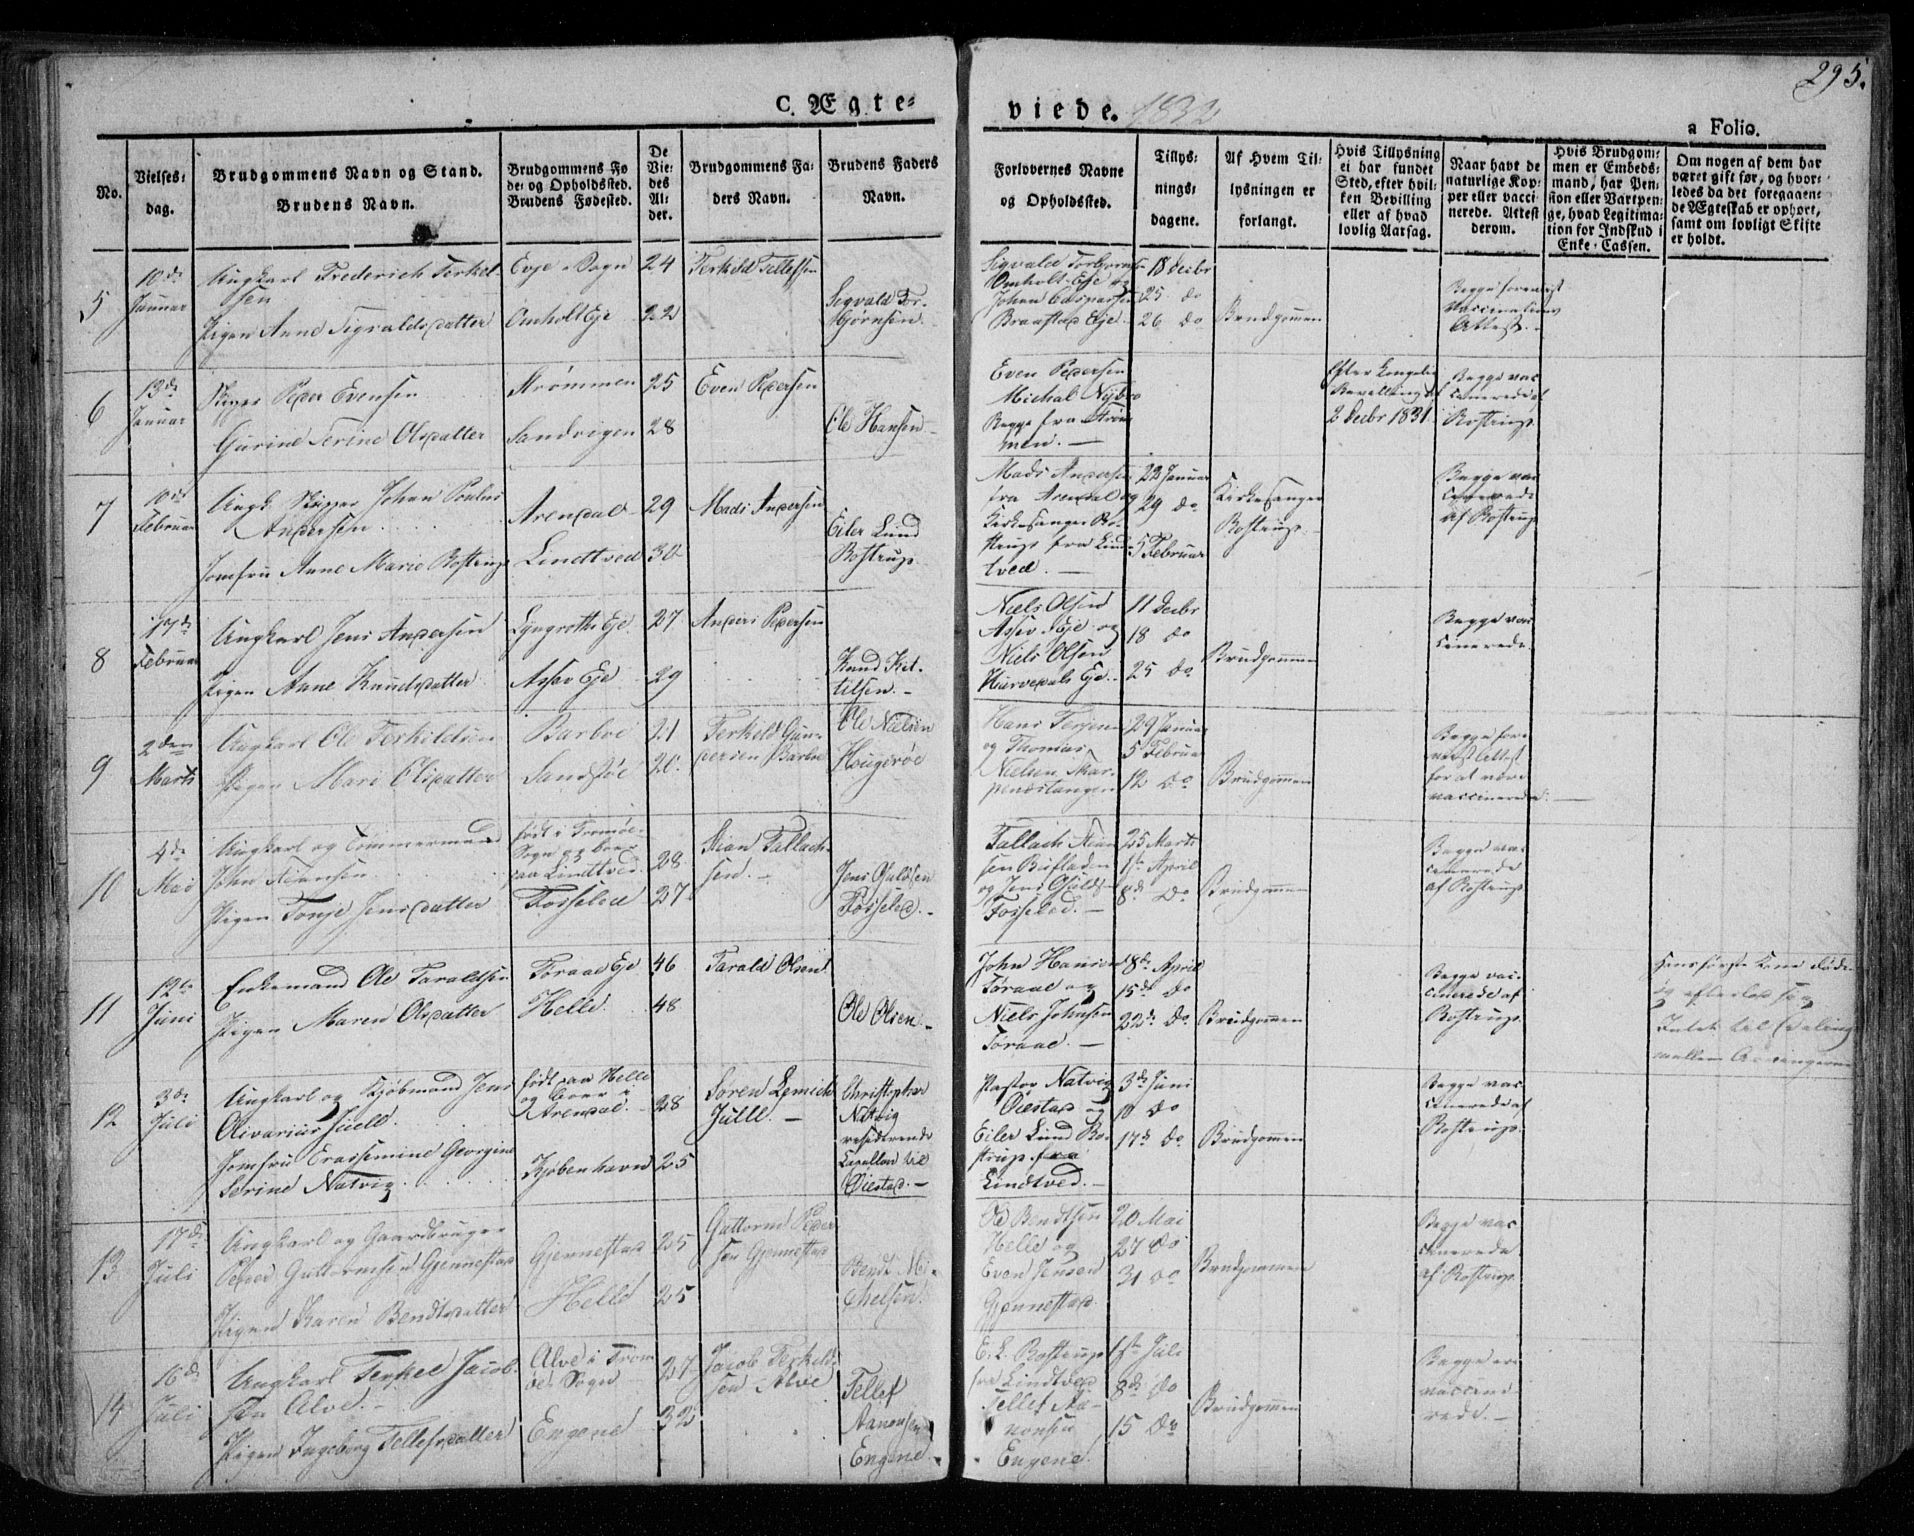 295.
C. Ægte=
viede. 1832
a Folio.
No.
Vielses=
dag.
Brudgommens Navn og Stand.
Brudens Navn.
Brudgommens Fø
de= og Opholdssted.
Brudens Fødested.
De
Vie=
des
Al=
der.
Brudgommens Fa=
ders Navn.
Brudens Faders
Navn.
Forlovernes Navne
og Opholdssted.
Tillys=
nings=
dagene.
Af Hvem Til=
lysningen er
forlangt.
Hvis Tillysning
ei har fundet
Sted, efter hvil=
ken Bevilling
eller af hvad
lovlig Aarsag.
Naar havt de
naturlige Kop=
per eller vacci=
nerede. Attest
derom.
Hvis Brudgom=
men er Embeds=
mand, har Pen=
sion eller Vartpen=
ge, hvad Legitima=
tion for Indskud i
Enke=Cassen.
Om nogen af dem har
været gift før, og hvor=
ledes da det foregaaen=
de Ægteskab er ophørt,
samt om lovligt Skifte
er holdt.
5
10de
Januar
Ungkarl Frederich Terkel
sen
Pigen Anne Sigvaldsdatter
Evje Sogn
Omholt Eje
24
22
Terkild Tellefsen
Segvald Tor=
bjørnsen.
Sigvald Torbjørnsen
Omholt Eje og
Johan Casparsen
Braastad Eje
18 Decbr
25 do
26 do
Brudgommen
Begge forevist
Vaccinations
Attest.
6
13de
Januar
Skipper Peder Evensen
Gurine Terine Olsdatter
Strømmen
Sandvigen
25
28
Even Pedersen
Ole Hansen
Even Pedersen
Michal
Begge fra Strøm
men.
Efter kongelig
Bevilling af
2 Decbr 1831
Begge vac
cinerede af
Rostrup
7
10de
Februar
Ungk. Skipper Johan Poulus
Andersen
Jomfru Anne Marie Rostrup
Arendal
Lindtved
29
30
Mads Andersen
Eiler Lund
Rostrup.
Mads Andersen
fra Arendal og
Kirkesanger Ro=
strup fra Lind=
tved.
22 Januar
29 do
5 Februar
Kirkesanger
Rostrup
Begge vac
cinerede
af Rostrup
8
17de
Februar
Ungkarl Jens Andersen
Pigen Anne Knudsdatter
Lyngroth Eje
Assev Eje
27
29
Anders Pedersen
Knud Kit=
tilsen.
Niels Olsen
Assev Eje og
Niels Olsen
Hurvedals Eje
11 Decbr
18 do
25 do
Brudgommen
Begge vac
cinerede.
9
2den
Marts
Ungkarl Ole Terkildsen
Pigen Mari Olsdatter
Barboe
Sandstøe
21
20.
Terkild Gun=
dersen Barboe
Ole Nielsen
Hougerøe
Hans Terjesen
og Thomas
Nielsen Skar=
pendslangen
29 Januar
5 Februar
12 do
Brudgommen
Begge fore
vist Attest
for at være
vaccinerede.
10
4de
Mai
Ungkarl og Tømmermand
John Stiansen
Pigen Tonje Jensdatter
født i Tromøe
Sogn og boer
paa Lindtved
Fosseled
28
27
Stian Tallach=
sen.
Jens
Fosseled.
Tallach Stian
sen Bufladen
og Jens
Fosseled.
25 Marts
1ste April
8de do
Brudgommen
Begge vac
cinerede
af Rostrup
11
12te
Juni
Enkemand Ole Taraldsen
Pigen Maren Olsdatter
Toraae Eje
Helle
46
48
Tarald Olsen
Ole Olsen
John Hansen
Toraae og
Niels Johnsen
Toraae.
8de April
15de do
22de do
Brudgommen
Begge vac=
cinerede af
Rostrup
Hans første Kone døde
og efterlod sig
Intet til Deling
mellem Arvingerne
12
3de
Juli
Ungkarl og Kjøbmand Jens
Olivarius Juell
Jomfru Erassemine Georgine
Serine Natvig
født paa Helle
og boer i
Arendal.
Kjøbenhavn
28
25
Søren Lemich
Juell.
Christopher
Natvig
residerende
Capellan til
Øiestad.
Pastor Natvig
Øiestad og
Eiler Lund Ro=
strup fra
Lindtved.
3de Juni
10 do
17de do
Brudgommen
Begge vac
cinerede af
Rostrup
13
17de
Juli
Ungkarl og Gaardbruger
Peder Guttormsen Gjennestad
Pigen Karen Bendtsdatter
Gjennestad
Helle
25
25
Guttorm Peder
sen Gjennestad
Bendt Mi=
chelsen
Ole Bendtsen
Helle og
Even Jensen
Gjennestad.
20 Mai
27 do
31 do
Brudgommen
Begge vac
cinerede
af Rostrup
14
16de
Juli
Ungkarl Terkel Jacob=
sen Alve.
Pigen Ingeborg Tellefsdatter
Alve i Trom
øe Sogn
Engene
27
32
Jacob Terkild=
sen Alve
Tellef
Aanonsen
Engene
E. L. Rostrup
fra Lindtved
Tellef Aa=
nonsen
Engene
1ste Juli
8de do
15 do
Brudgommen
Begge er
vaccine
rede.